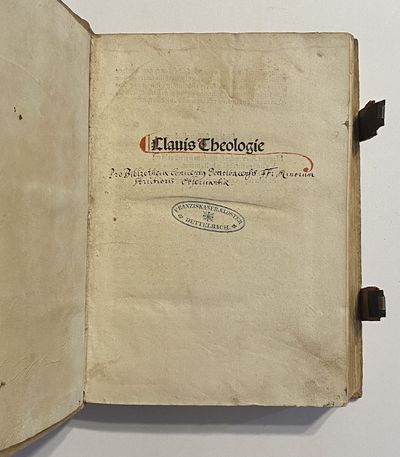 Clauis Theologie
Pro Bibliotheca conventus Dettelbacensis FF. Minorum
strictioris observantiæ
FRANZISKANER-KLOSTER
DETTELBACH.